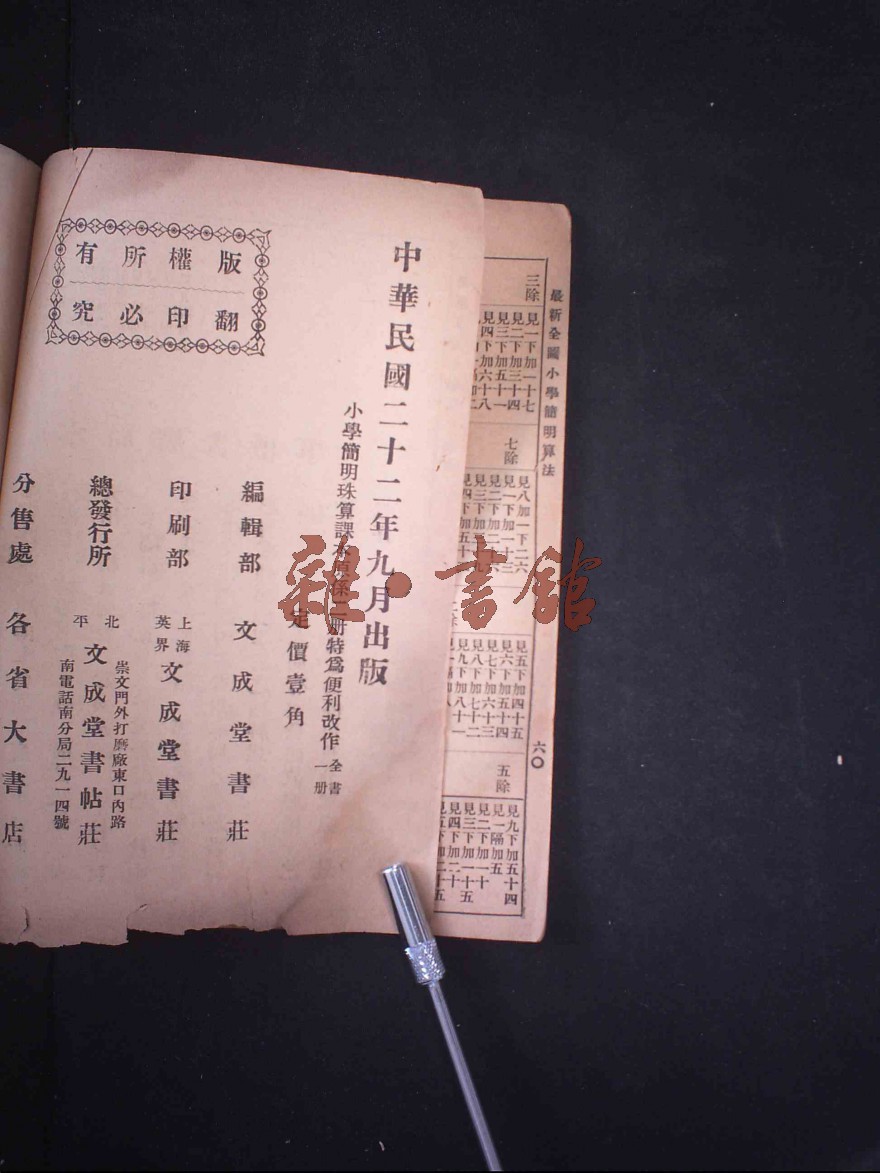 中華民國二十二年九月出版
小學簡明珠算課本原係二册特爲便利改作全書一册
定價壹角
編輯部 文成堂書莊
印刷部 上海英界 文成堂書莊
總發行所 北平 文成堂書帖莊
崇文門外打磨廠東口內路南電話南分局二九一四號
分售處 各省大書店
版權所有
翻印必究
雜·書館
最新全圖小學簡明算法
六〇
三除
見一下加一十七
見二下加三十四
見三下加五十一
見四下加六十八
七除
見八加一下二六
見一下加一十三
見二下加二十六
見三下加
見四下加五十
二除
見五下加四十五
見六下加五十四
見七下加六十三
見八下加七十二
見九下加八十一
五除
見九下加五十四
見一隔加五
見二下加一十
見三下加一十五
見四下加二十
見五下加二十五